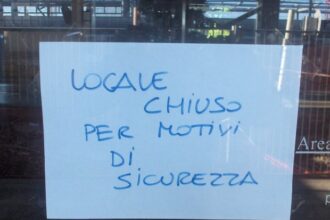 LOCALE
CHIUSO
PER MOTIVI
DI
SICUREZZA
Area